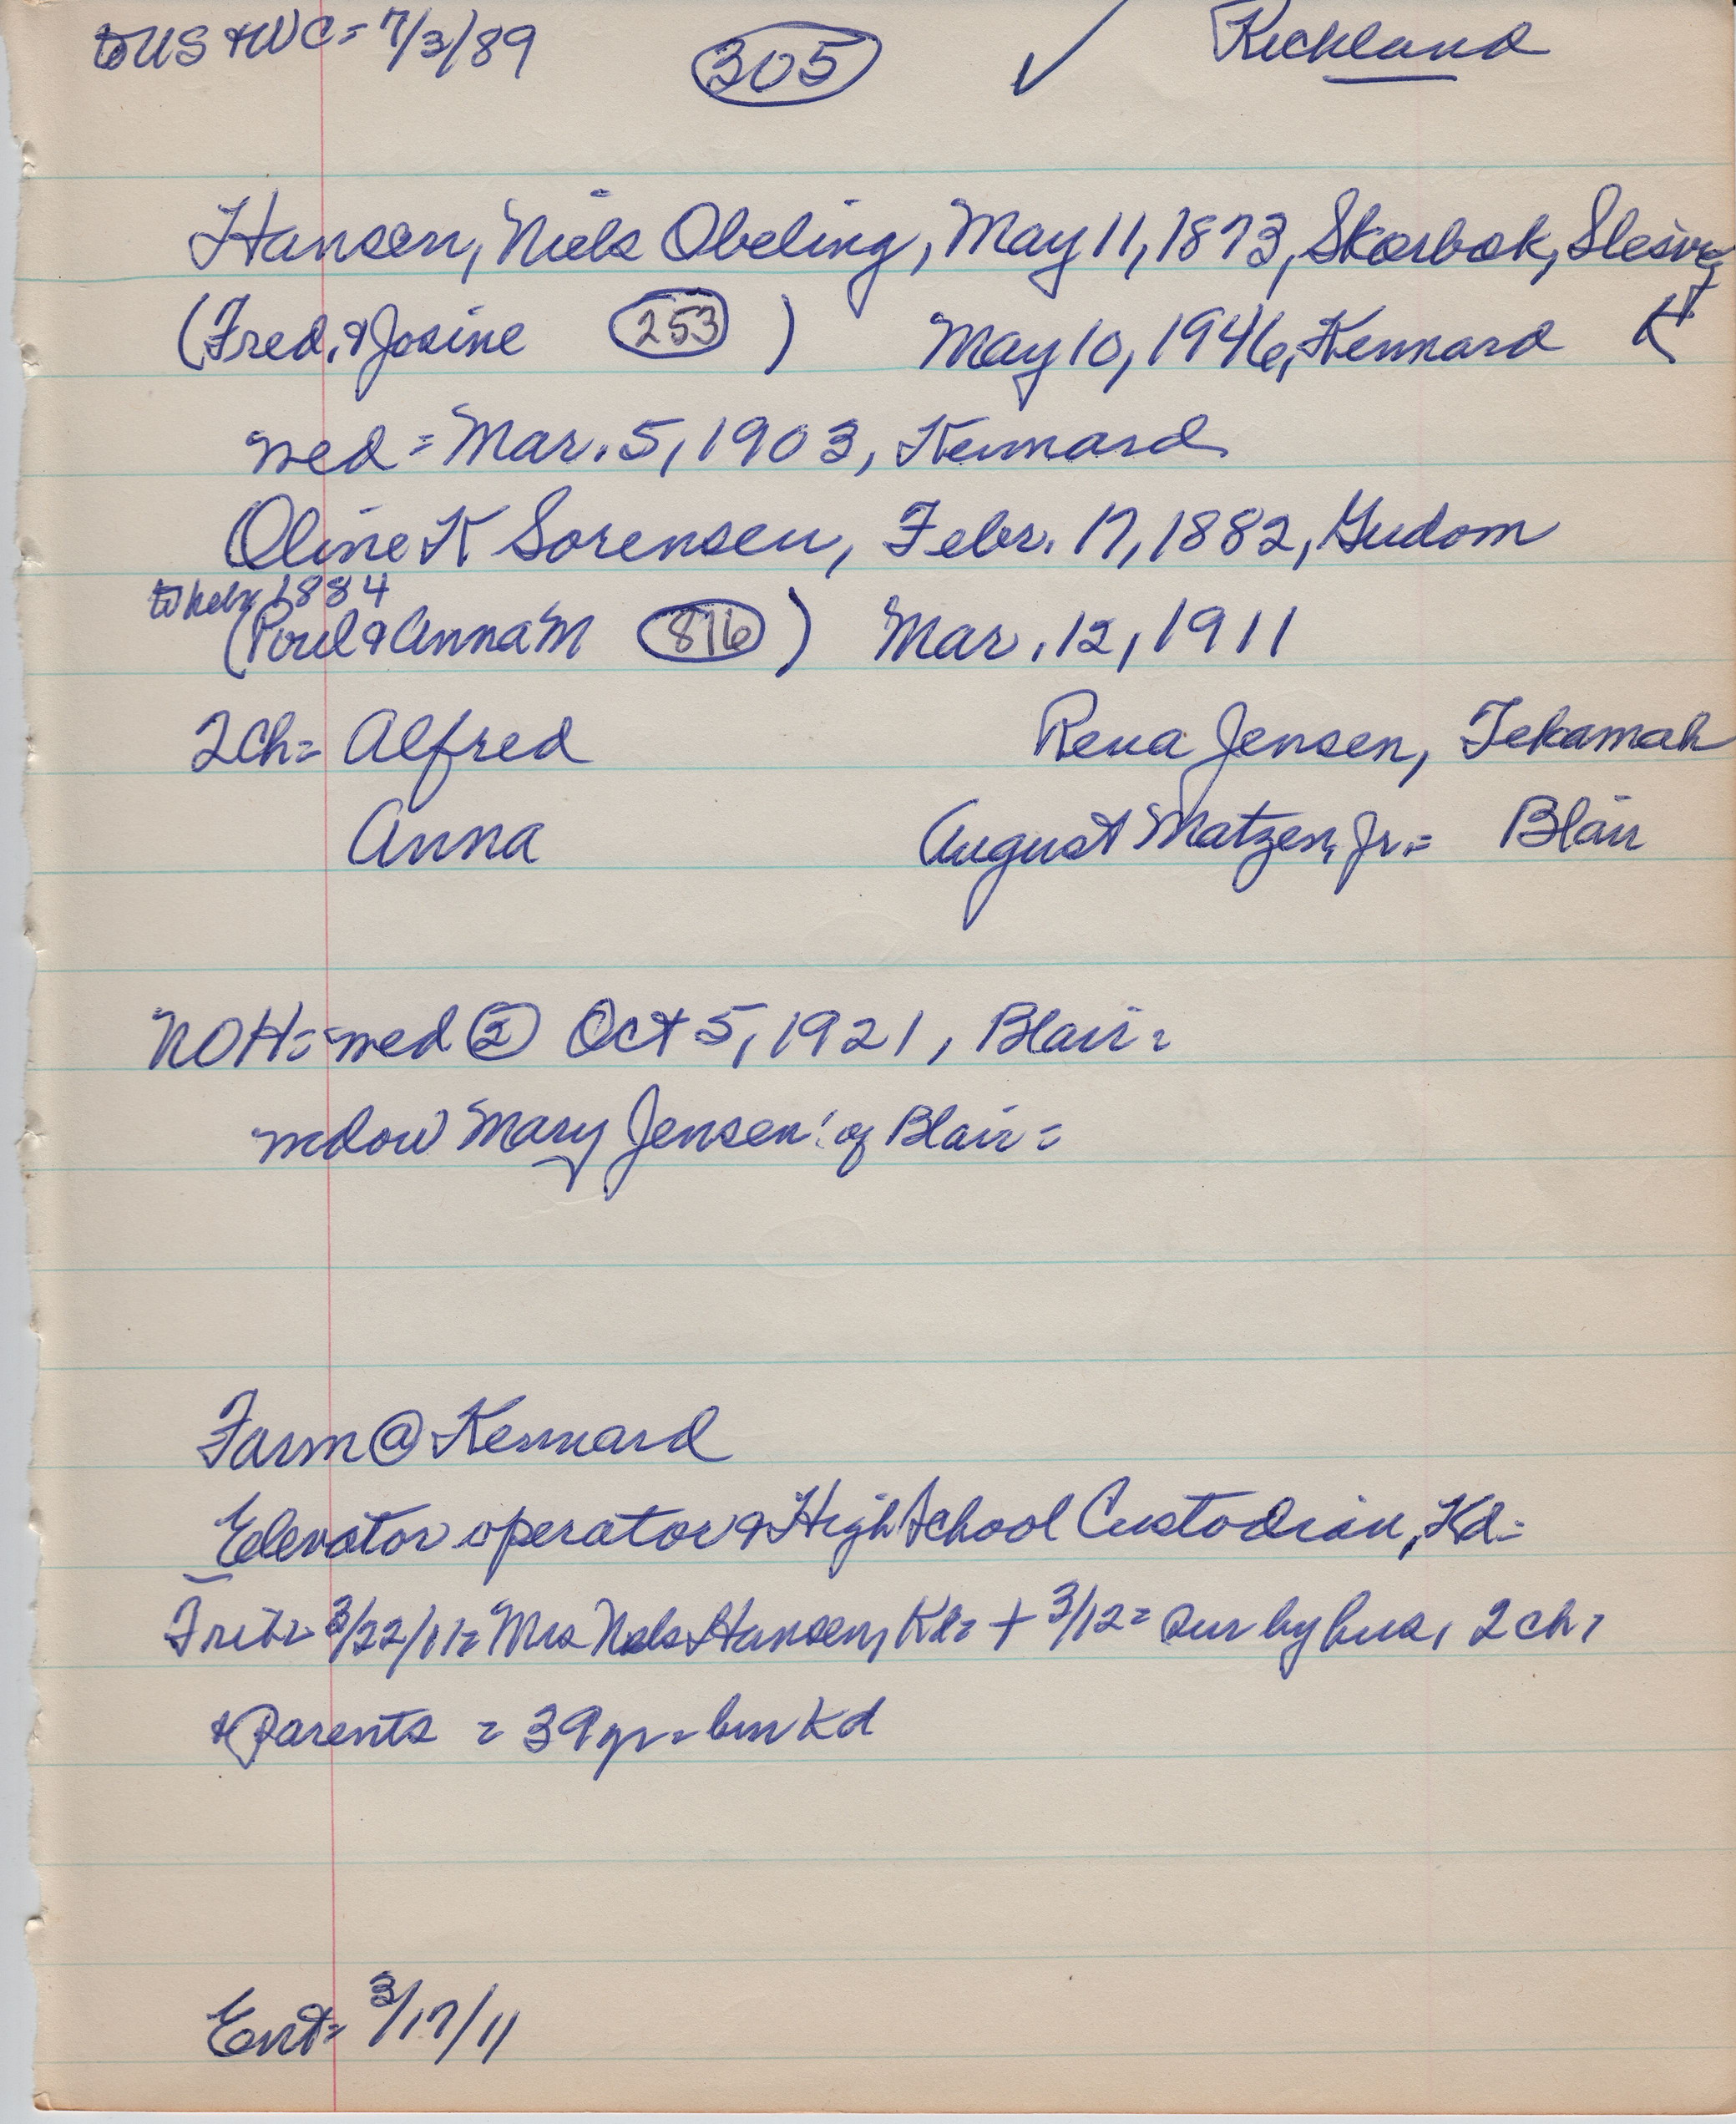 to US & WC = 7/3/89 305 ✓ Richland
Hansen, Niels Obeling, May 11, 1873, Skarbak, Slesvg
(Fred. & Josine 253 ) May 10, 1946, Kennard K
wed = Mar. 5, 1903, Kennard
Oline K Sorensen, Febr. 17, 1882, Gudom
to Nebr 1884
(Poul & Anna M 876 ) Mar. 12, 1911
2 ch = Alfred Rena Jensen, Tekamah
Anna August Matzen, Jr. = Blair
NOH = wed ② Oct 5, 1921, Blair =
widow Mary Jensen of Blair =
Farm @ Kennard
Elevator operator & High School Custodian, Kd =
3/22/11 = Mrs Nels Hansen, Kd = + 3/12 = sur by hus, 2 ch,
& Parents = 39 yr = Kd
Ent = 3/17/11